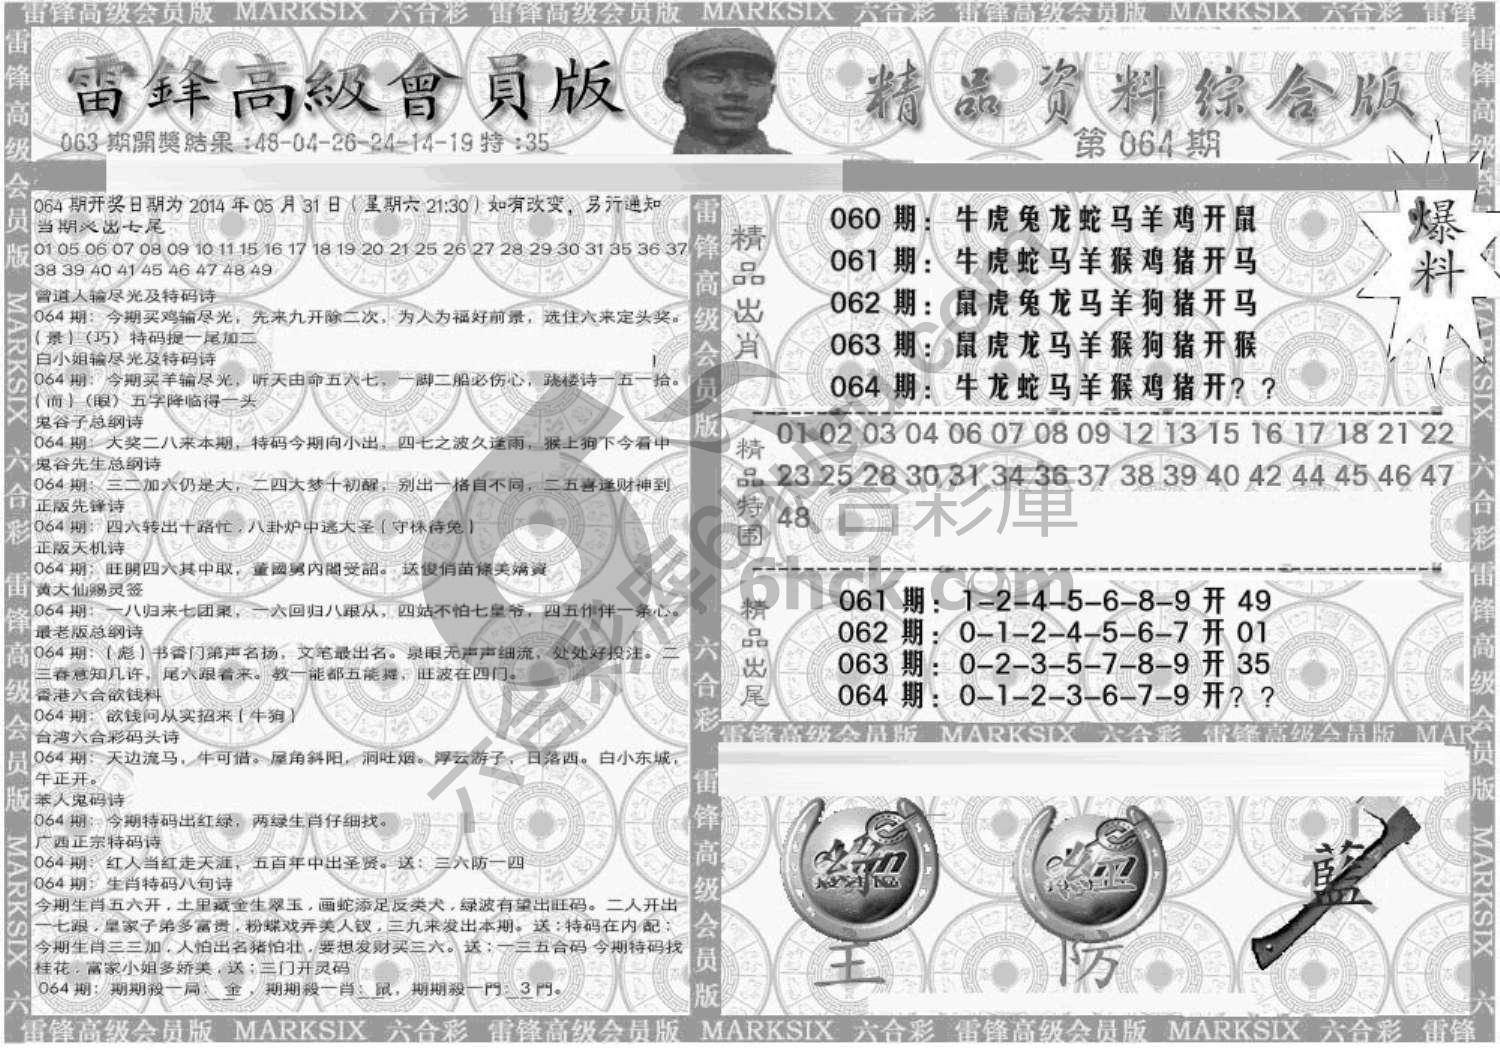 雷锋高级会员版 MARKSIX 六合彩 雷锋高级会员版 MARKSIX 六合彩 雷锋高级会员版 MARKSIX 六合彩 雷锋
雷鋒高級會員版
精品资料综合版
063 期開獎結果:48-04-26-24-14-19 特:35
第 064 期
064 期开奖日期为 2014 年 05 月 31 日(星期六 21:30)如有改变，另行通知
当期必出七尾
01 05 06 07 08 09 10 11 15 16 17 18 19 20 21 25 26 27 28 29 30 31 35 36 37
38 39 40 41 45 46 47 48 49
曾道人输尽光及特码诗
064 期：今期买鸡输尽光，先来九开除二次，为人为福好前景，选住六来定头奖。
(景)(巧)特码提一尾加二
白小姐输尽光及特码诗
064 期：今期买羊输尽光，听天由命五六七，一脚二船必伤心，跳楼诗一五一拾。
(而)(眼)五字降临得一头
鬼谷子总纲诗
064 期：大奖二八来本期，特码今期向小出，四七之波久逢雨，猴上狗下今看中
鬼谷先生总纲诗
064 期：三二加六仍是大，二四大梦十初醒，别出一格自不同，二五喜逢财神到
正版先锋诗
064 期：四六转出十路忙，八卦炉中逃大圣(守株待兔)
正版天机诗
064 期：旺開四六其中取，董國舅內閣受詔。送俊俏苗條美嬌資
黄大仙赐灵签
064 期：一八归来七团聚，一六回归八跟从，四姑不怕七皇爷，四五作伴一条心。
最老版总纲诗
064 期：(彪)书香门第声名扬，文笔最出名。泉眼无声声细流，处处好投注。二
三春意知几许，尾六跟着来。教一能都五能舞，旺波在四门。
香港六合欲钱料
064 期：欲钱问从实招来(牛狗)
台湾六合彩码头诗
064 期：天边流马，牛可借。屋角斜阳，洞吐烟。浮云游子，日落西。白小东城，
午正开。
苯人鬼码诗
064 期：今期特码出红绿，两绿生肖仔细找。
广西正宗特码诗
064 期：红人当红走天涯，五百年中出圣贤。送：三六防一四
064 期：生肖特码八句诗
今期生肖五六开，土里藏金生翠玉，画蛇添足反类犬，绿波有望出旺码。二人开出
一七跟，皇家子弟多富贵，粉蝶戏弄美人钗，三九来发出本期。送：特码在内 配：
今期生肖三三加，人怕出名猪怕壮，要想发财买三六。送：一三五合码 今期特码找
桂花，富家小姐多娇美，送：三门开灵码
064 期：期期殺一局：金，期期殺一肖：鼠，期期殺一門：3 門。
爆料
精品出肖
060 期：牛虎兔龙蛇马羊鸡开鼠
061 期：牛虎蛇马羊猴鸡猪开马
062 期：鼠虎兔龙马羊狗猪开马
063 期：鼠虎龙马羊猴狗猪开猴
064 期：牛龙蛇马羊猴鸡猪开？？
精品特围
01 02 03 04 06 07 08 09 12 13 15 16 17 18 21 22
23 25 28 30 31 34 36 37 38 39 40 42 44 45 46 47
48
精品出尾
061 期：1-2-4-5-6-8-9 开 49
062 期：0-1-2-4-5-6-7 开 01
063 期：0-2-3-5-7-8-9 开 35
064 期：0-1-2-3-6-7-9 开？？
六合彩库 6hck.com
六合彩庫
6hck.com
主
防
藍
雷锋高级会员版 MARKSIX 六合彩 雷锋高级会员版 MARKSIX 六合彩 雷锋高级会员版 MARKSIX 六合彩 雷锋